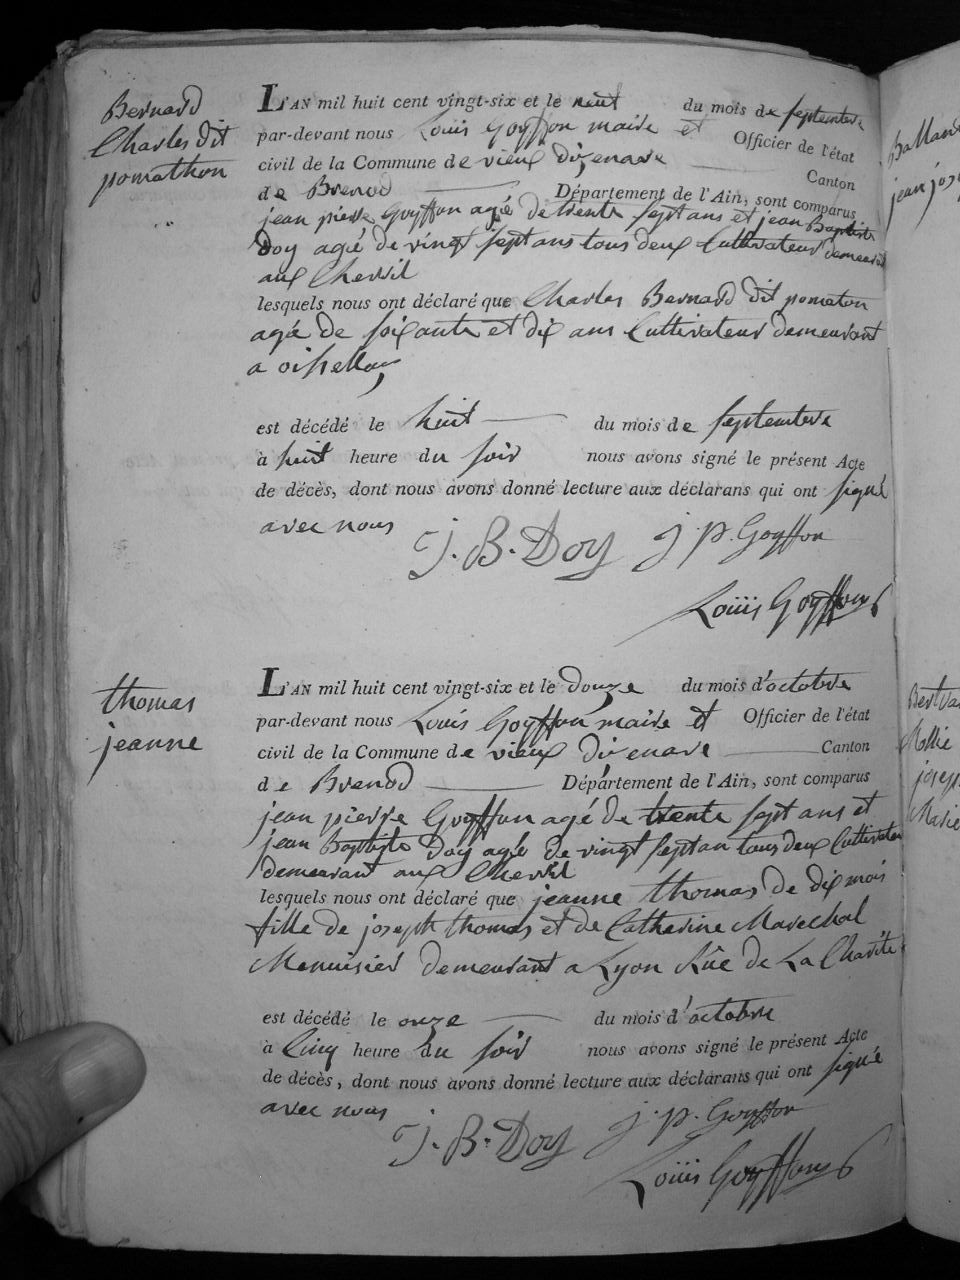 Bernard
Charles dit
pomathon
L'AN mil huit cent vingt-six et le neuf du mois de septembre
par-devant nous Louis Goyffon maire et Officier de l'état
civil de la Commune de vieux dizenave Canton
de Brenod Département de l'Ain, sont comparus
jean pierre Goyffon agé de trente sept ans et jean Baptiste
Doy agé de vingt sept ans tous deux Cultivateur demeurant
aux Chevril
lesquels nous ont déclaré que Charles Bernard dit pomaton
agé de soixante et dix ans Cultivateur demeurant
a oissellaz
est décédé le huit du mois de septembre
à huit heure du soir nous avons signé le présent Acte
de décès, dont nous avons donné lecture aux déclarans qui ont signé
avec nous
J. B. Doy J p. Goyffon
Louis Goyffon
thomas
jeanne
L'AN mil huit cent vingt-six et le douze du mois d'octobre
par-devant nous Louis Goyffon maire et Officier de l'état
civil de la Commune de vieux dizenave Canton
de Brenod Département de l'Ain, sont comparus
jean pierre Goyffon agé de trente sept ans et
jean Baptiste Doy agé de vingt sept an tous deux Cultivateur
demeurant aux Chevril
lesquels nous ont déclaré que jeanne thomas de dix mois
fille de joseph thomas et de Catherine Marechal
Menuisier demeurant a Lyon Rüe de La Charité
est décédé le onze du mois d'octobre
à Cinq heure du soir nous avons signé le présent Acte
de décès, dont nous avons donné lecture aux déclarans qui ont signé
avec nous
J. B. Doy j. p. Goyffon
Louis Goyffon